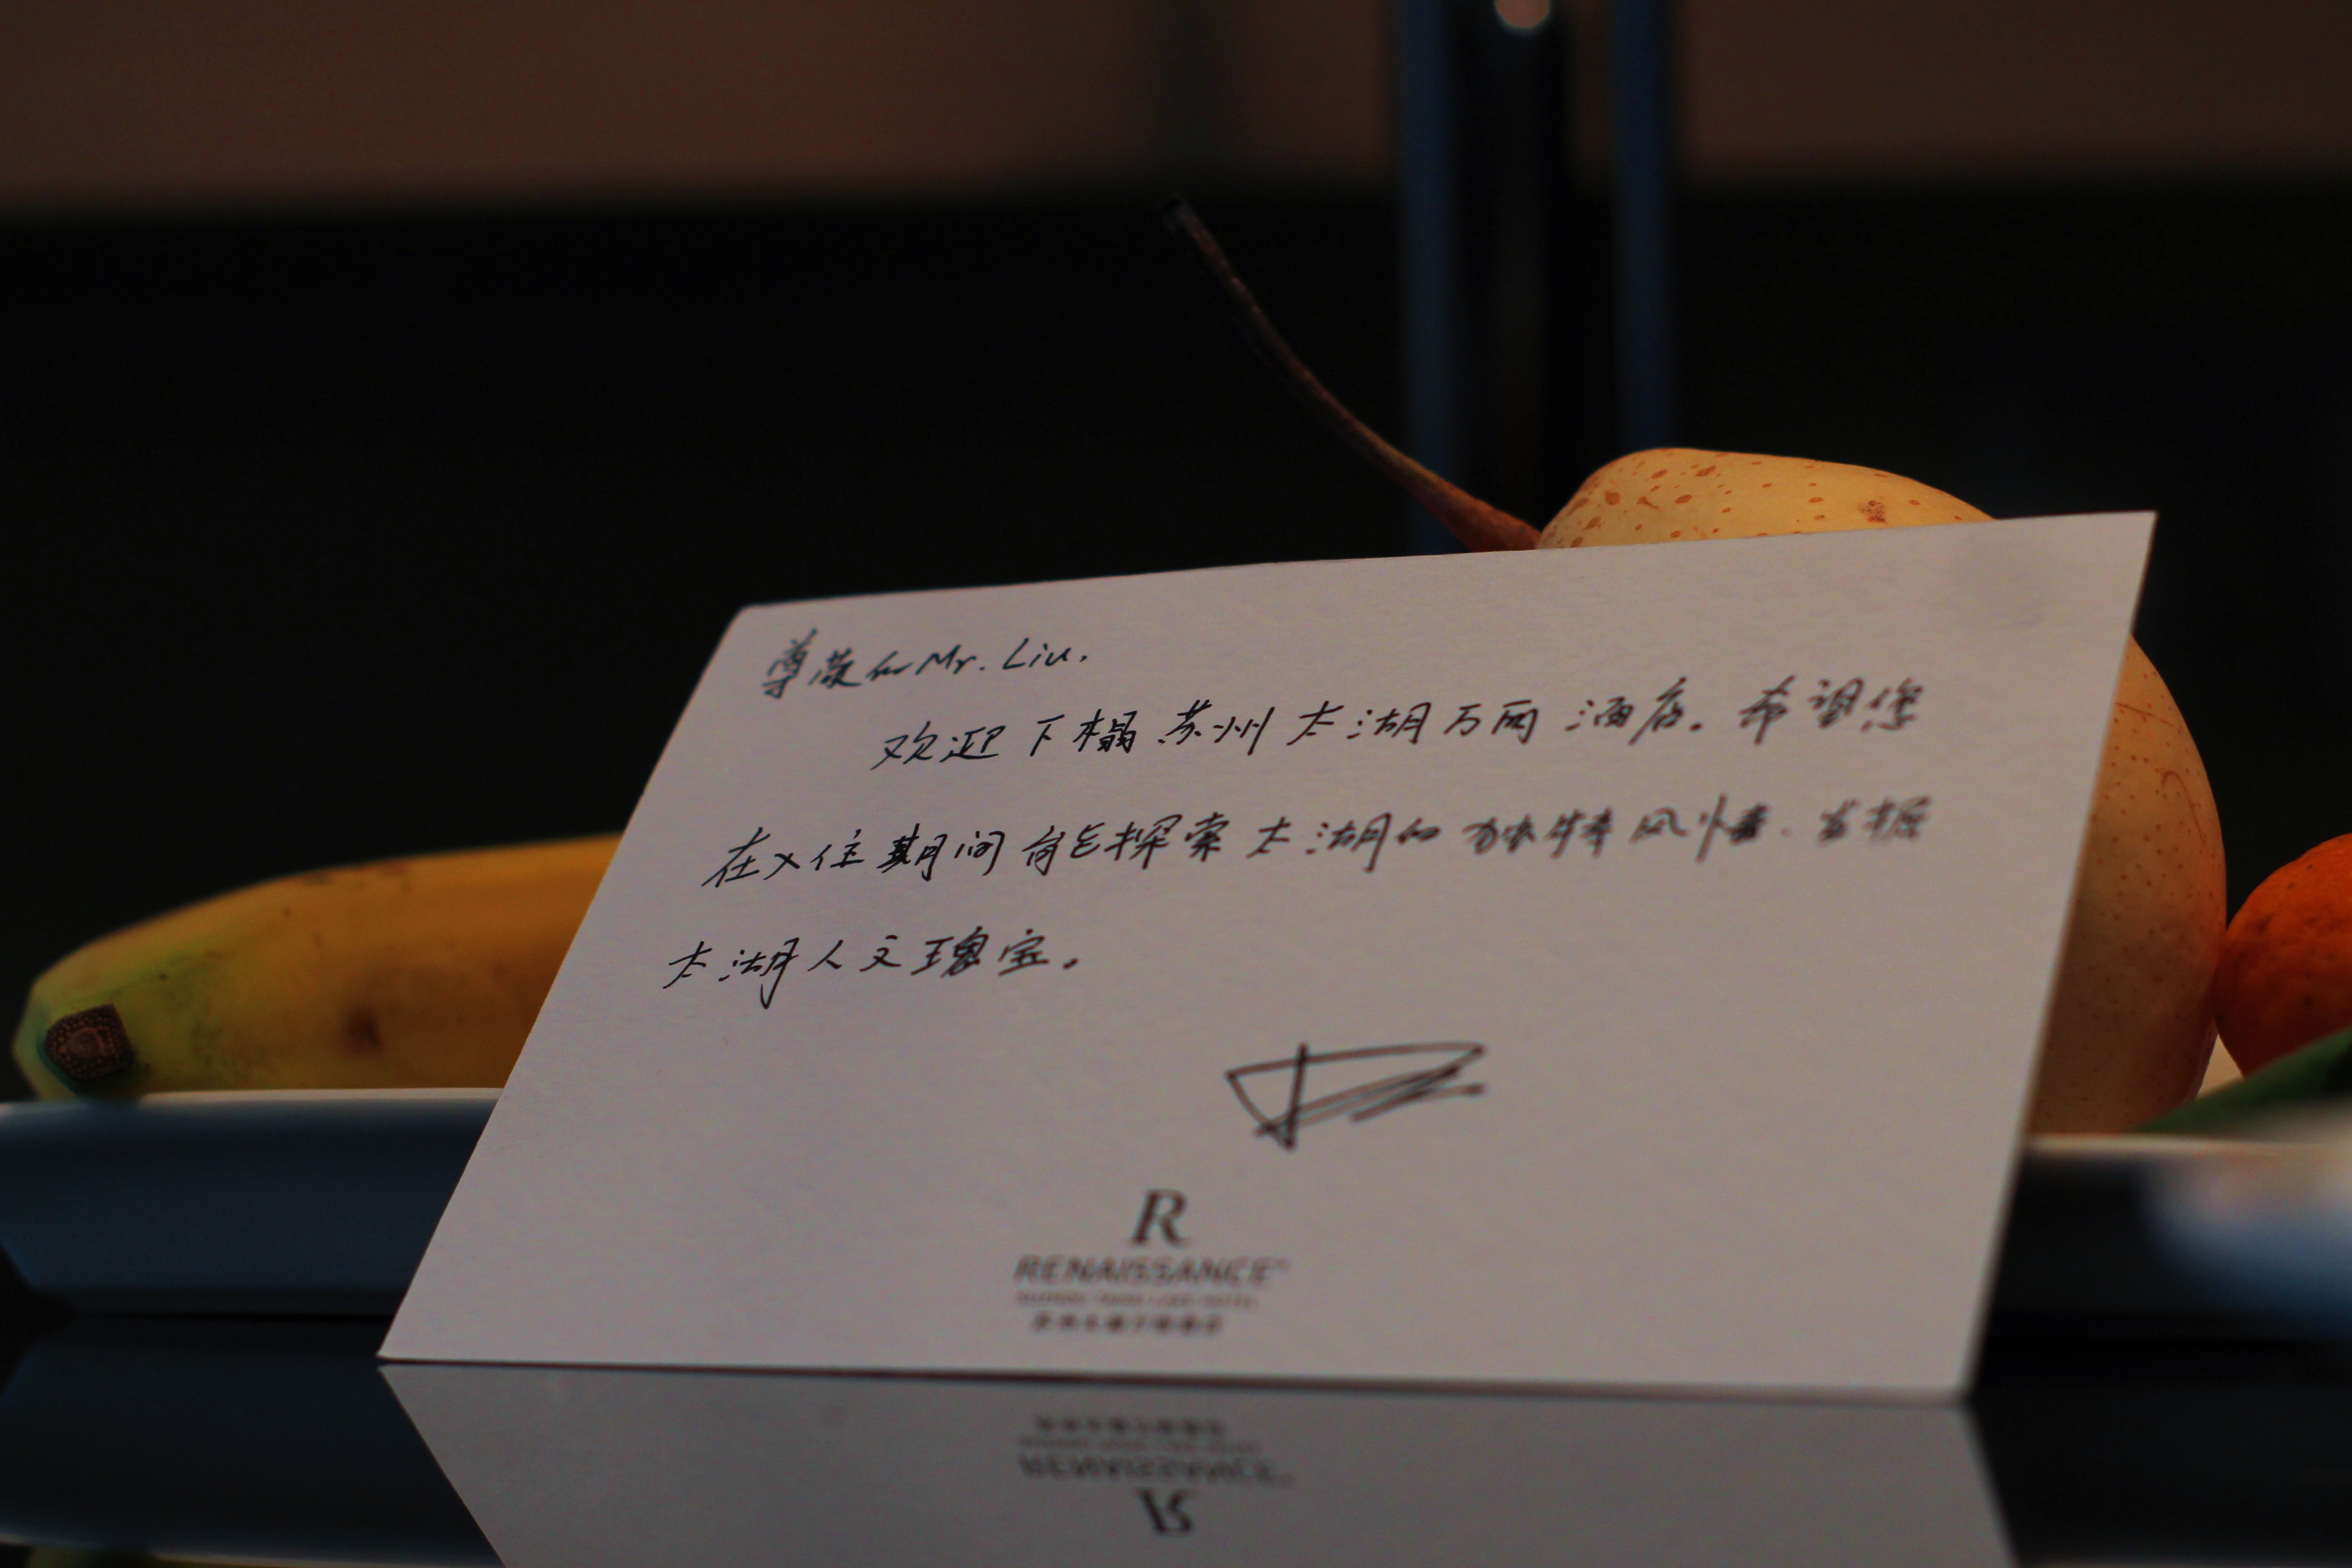 尊敬的Mr. Liu,
欢迎下榻苏州太湖万丽酒店。希望您
在入住期间能探索太湖的独特风情、发掘
太湖人文瑰宝。
R
RENAISSANCE